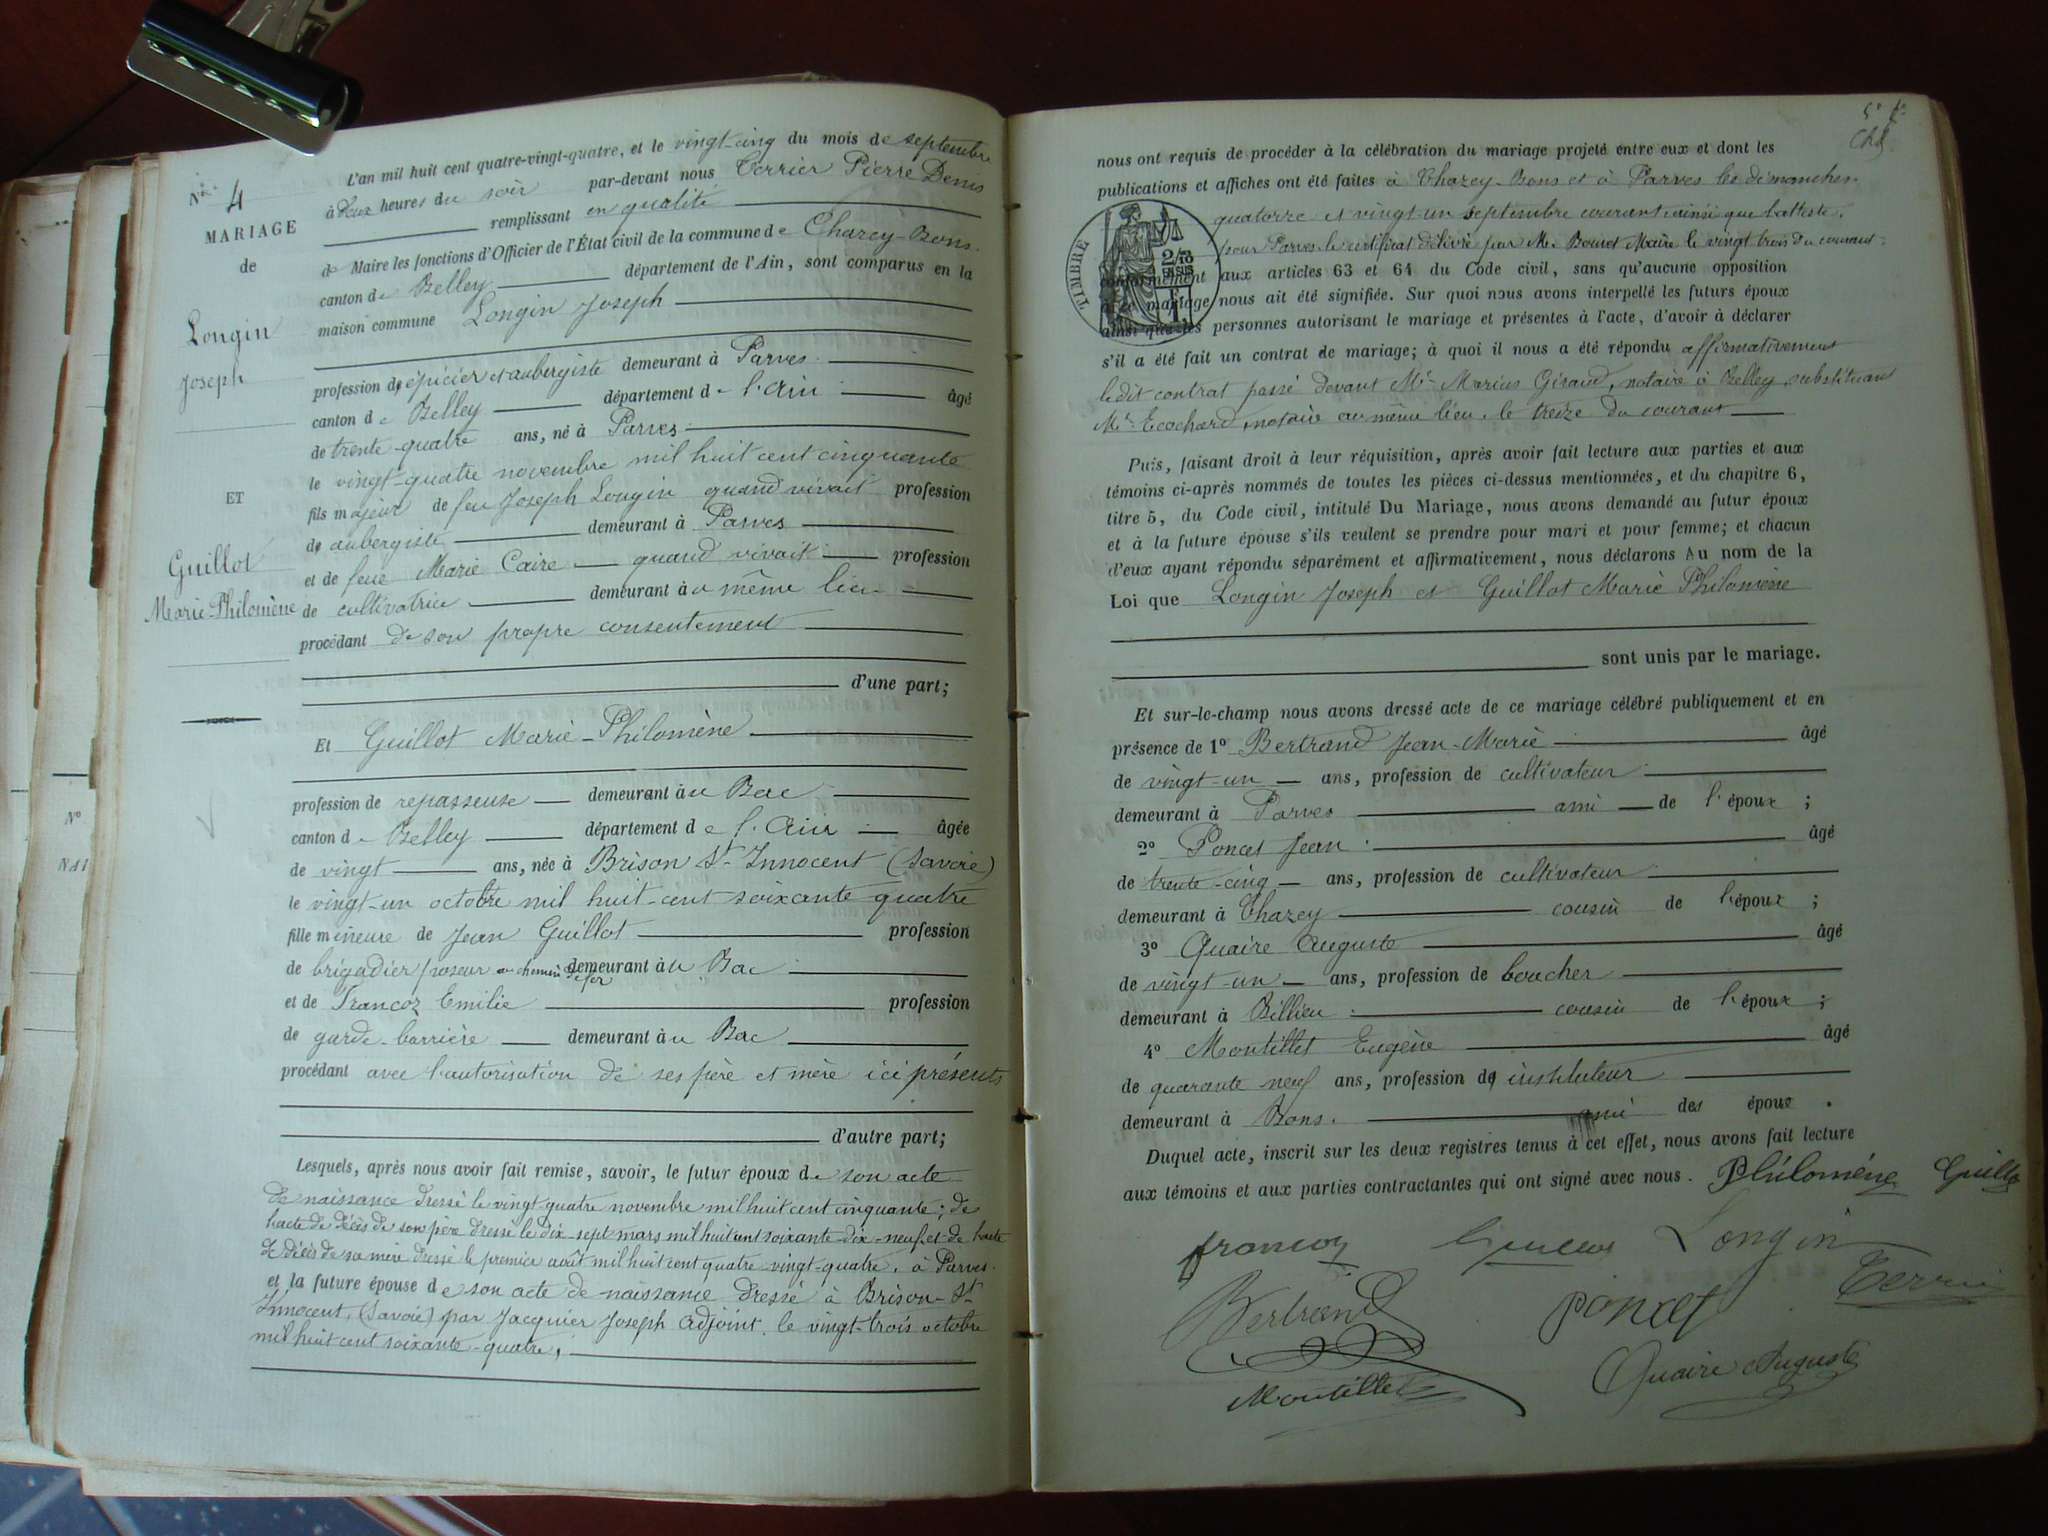 N° 4
MARIAGE
de
Longin
Joseph
ET
Guillot
Marie-Philomène
L'an mil huit cent quatre-vingt-quatre, et le vingt-cinq du mois de septembre
à deux heures du soir par-devant nous Terrier Pierre Denis
remplissant en qualité
de Maire les fonctions d'Officier de l'État civil de la commune de Chazey-Bons.
canton de Belley département de l'Ain, sont comparus en la
maison commune Longin Joseph
profession d'épicier et aubergiste demeurant à Parves.
canton de Belley département de l'Ain âgé
de trente-quatre ans, né à Parves
le vingt-quatre novembre mil huit cent cinquante
fils majeur de feu Joseph Longin quand vivait profession
d'aubergiste demeurant à Parves
et de feue Marie Caire quand vivait profession
de cultivatrice demeurant au même lieu
procédant de son propre consentement
d'une part;
Et Guillot Marie-Philomène
profession de repasseuse demeurant au Bac
canton de Belley département de l'Ain âgée
de vingt ans, née à Brison St Innocent (Savoie)
le vingt-un octobre mil huit-cent soixante quatre
fille mineure de Jean Guillot profession
de brigadier poseur au chemin de fer demeurant au Bac
et de Francoz Emilie profession
de garde-barrière demeurant au Bac
procédant avec l'autorisation de ses père et mère ici présents
d'autre part;
Lesquels, après nous avoir fait remise, savoir, le futur époux de son acte
de naissance dressé le vingt-quatre novembre mil huit cent cinquante; de
l'acte de décès de son père dressé le dix-sept mars mil huit cent soixante-dix-neuf et de l'acte
de décès de sa mère dressé le premier août mil huit cent quatre-vingt-quatre, à Parves.
et la future épouse de son acte de naissance dressé à Brison-St
Innocent, (Savoie) par Jacquier Joseph adjoint, le vingt-trois octobre
mil huit cent soixante-quatre,
N°
NAI
nous ont requis de procéder à la célébration du mariage projeté entre eux et dont les
publications et affiches ont été faites à Chazey-Bons et à Parves les dimanches
quatorze et vingt-un septembre courant ainsi que l'atteste,
pour Parves le certificat délivré par Mr Bouvet Maire le vingt trois du courant
TIMBRE
2/10
EN SUS
conformément aux articles 63 et 64 du Code civil, sans qu'aucune opposition
à ce mariage nous ait été signifiée. Sur quoi nous avons interpellé les futurs époux
ainsi que les personnes autorisant le mariage et présentes à l'acte, d'avoir à déclarer
s'il a été fait un contrat de mariage; à quoi il nous a été répondu affirmativement
ledit contrat passé devant Mr Marius Giraud, notaire à Belley substituant
Mr Ecochard, notaire au même lieu, le treize du courant
Puis, faisant droit à leur réquisition, après avoir fait lecture aux parties et aux
témoins ci-après nommés de toutes les pièces ci-dessus mentionnées, et du chapitre 6,
titre 5, du Code civil, intitulé Du Mariage, nous avons demandé au futur époux
et à la future épouse s'ils veulent se prendre pour mari et pour femme; et chacun
d'eux ayant répondu séparément et affirmativement, nous déclarons Au nom de la
Loi que Longin Joseph et Guillot Marie Philomène
sont unis par le mariage.
Et sur-le-champ nous avons dressé acte de ce mariage célébré publiquement et en
présence de 1° Bertrand Jean-Marie âgé
de vingt-un ans, profession de cultivateur
demeurant à Parves ami de l'époux ;
2° Poncet Jean âgé
de trente-cinq ans, profession de cultivateur
demeurant à Chazey cousin de l'époux ;
3° Quaire Auguste âgé
de vingt-un ans, profession de boucher
demeurant à Billieu cousin de l'époux ;
4° Montillet Eugène âgé
de quarante neuf ans, profession d'instituteur
demeurant à Bons. ami des époux .
Duquel acte, inscrit sur les deux registres tenus à cet effet, nous avons fait lecture
aux témoins et aux parties contractantes qui ont signé avec nous. Philomène Guillot
francoz Guillot Longin
Bertrand Poncet Terrier
Montillet Quaire Auguste